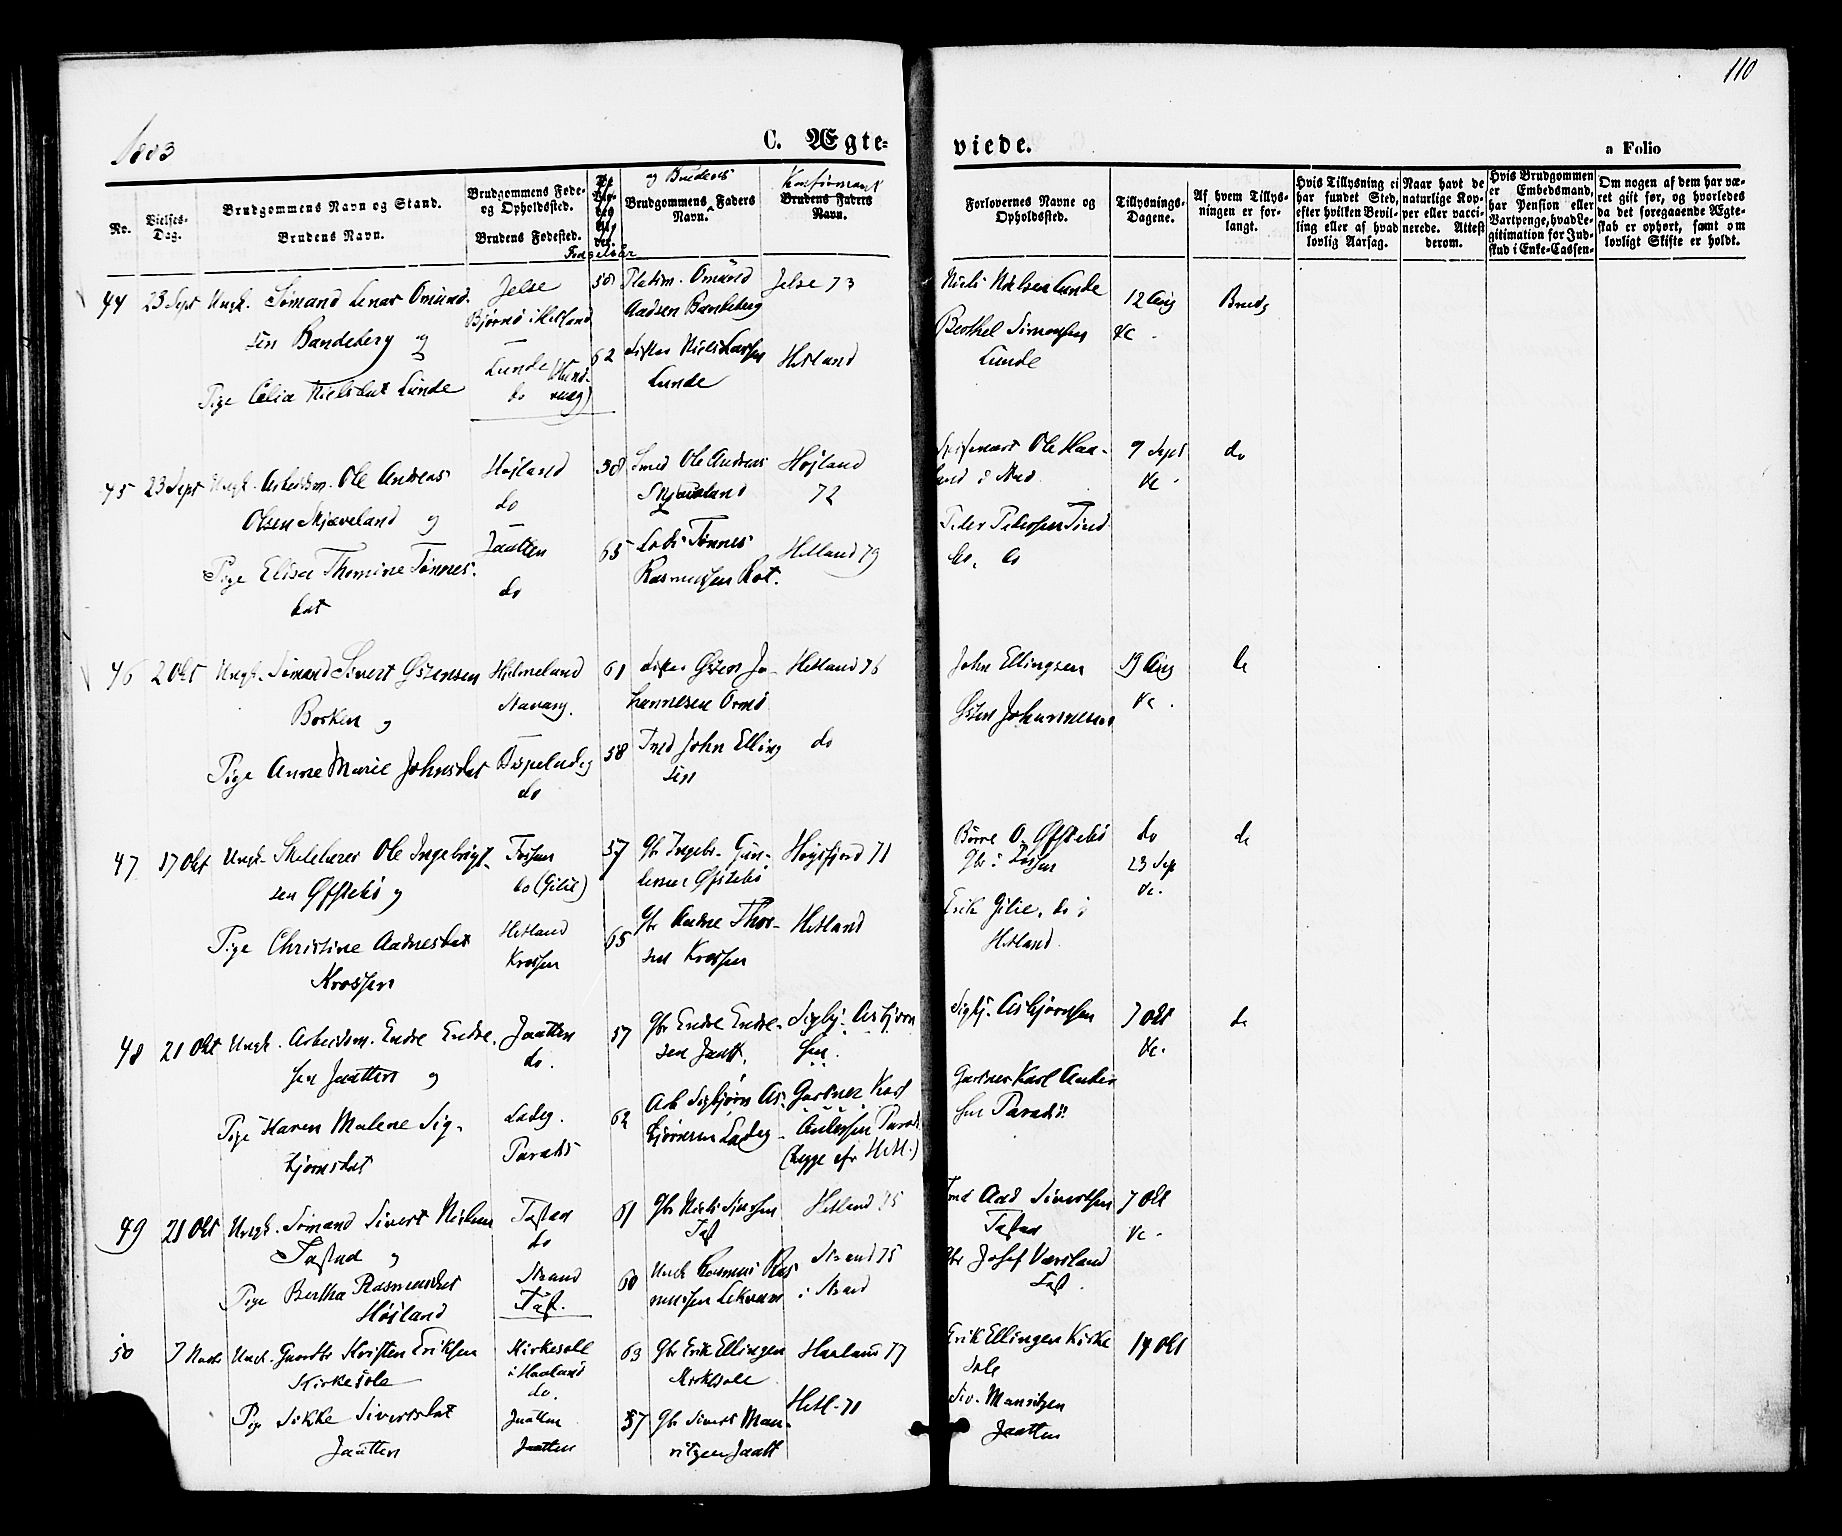 110
1883
C. Ægte-
viede.
a Folio
No.
Vielses-Dag.
Brudgommens Navn og Stand.
Brudens Navn.
Brudgommens Føde- og Opholdssted.
Brudens Fødested.
Fødselsaar
og Brudens
Brudgommens Faders Navn.
Konfirmant
Brudens Faders Navn.
Forlovernes Navne og Opholdssted.
Tillysnings-Dagene.
Af hvem Tillysningen er forlangt.
Hvis Tillysning ei har fundet Sted, efter hvilken Bevilling eller af hvad lovlig Aarsag.
Naar havt de naturlige Kopper eller vaccinerede. Attest derom.
Hvis Brudgommen er Embedsmand, har Pension eller Vartpenge, hvad Legitimation for Indskud i Enke-Cassen-
Om nogen af dem har været gift før, og hvorledes da det foregaaende Ægteskab er ophørt, samt om lovligt Skifte er holdt.
44 23 Sept Ungk. Sømand Lenas Omund-
sen Bandeberg og
Pige Celia Nielsdat Lunde
Jelse
Bjørnø i Hetland
Lunde
do
58
62
Omund
Aadsen Bandeberg
Niels Larsen
Lunde
Jelse 73
Hetland
Niels Nielsen Lunde
Berthel Simonsen
Lunde
12 Aug
&c.
Bruds
45 23 Sept Ungk. Arbeidsm. Ole Andreas
Olsen Skjæveland og
Pige Elisa Thomine Tønnes-
dat
Højland
do
Jaatten
do
58
65
Smed Ole Andreas
Skjæveland
Lods Tønnes
Rasmussen Rot.
Højland
72
Hetland 79
Ole Haa-
land i Stad
Peder Pedersen Tind
do, do
7 Sept
&c.
do
46 2 Okt Ungk. Sømand Sivert Østensen
Borken og
Pige Anne Marie Johnsdat
Hjelmeland
Stavang.
Dispeladeg
do
61
58
Østen Jo-
hannesen Ornø
Ind John Elling
sen
Hetland 76
do
John Ellingsen
Østen Johannesen
19 Aug
&c.
do
47 17 Okt Ungk. Ole Ingebrigt-
sen Øfstebø og
Pige Christine Aadnesdat
Krossen
Fossan
do (Gilie)
Hetland
Krossen
57
65
Gbr Ingebr. Gun-
dersen Øfstebø
Gbr Aadne Thor-
sen Krossen
Høgsfjord 71
Hetland
Børre O. Øfstebø
Gbr i Fossan
Erik Gilie, do i
Hetland
do
23 Sep
&c.
do
48 21 Okt Ungk. Arbeidsm. Endre Endre-
sen Jaatten og
Pige Karen Malene Sig-
bjørnsdat
Jaatten
do.
Ladeg.
Paradis
57
62
Gbr Endre Endre-
sen Jaatt.
Arb Sigbjørn As-
bjørnsen Ladeg
Sigbj. Asbjørn
sen.
Gartner Karl
Andersen Parad.
(begge efr Hetl.)
Sigbj. Asbjørnsen
Gartner Karl Ander
sen Paradis
7 Okt
&c.
do
49 21 Okt Ungk. Sømand Sivert Nielsen
Tastad og
Pige Bertha Rasmusdat
Højland
Tastad
do
Strand
Tast.
61
60
Gbr Niels Sivertsen
Tast
Ungk Rasmus Ras
mussen Lekvam
Hetland 75
Strand 75
i Strand
Aad Sivertsen
Tastad
Gbr Josef Værsland
Tast.
7 Okt
&c.
50 7 Novb Ungk. Gaardbr Kristen Eriksen
Kirkesole
Pige Sikke Sivertsdat
Jaatten
Kirkesole
i Haaland
do.
Jaatten
Jaatten
63
57
Gbr Erik Ellingsen
Kirkesole
Gbr Sivert Mau-
ritzen Jaatt
Haaland 77
Hetl. 71
Erik Ellingsen Kirke
sole
Siv. Mauritzen
Jaatten
14 Okt